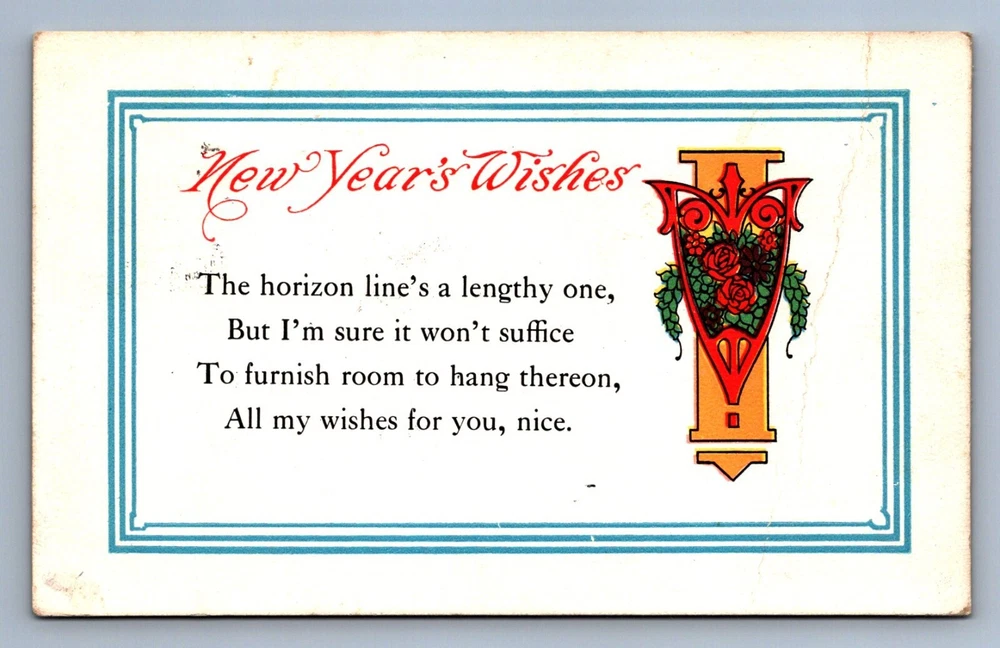 New Year's Wishes
The horizon line's a lengthy one,
But I'm sure it won't suffice
To furnish room to hang thereon,
All my wishes for you, nice.